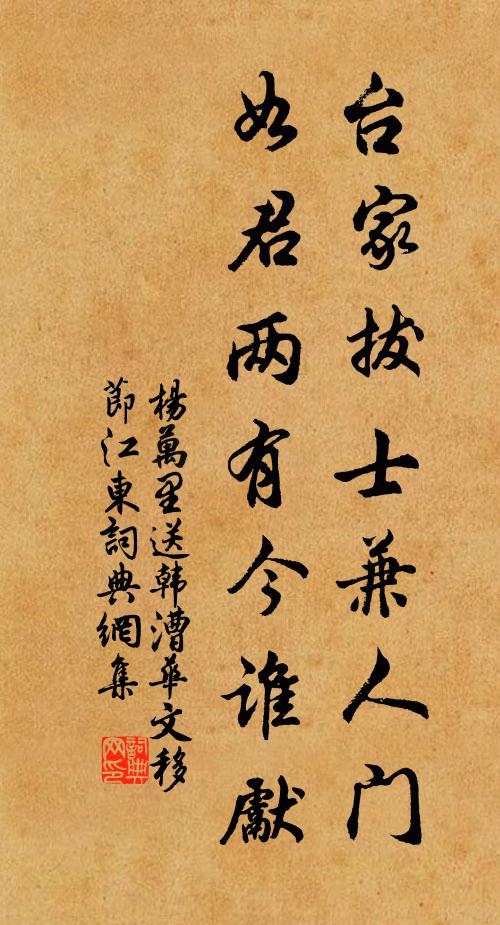 台家拔士兼人门
如君两有今谁獻
楊萬里送韩漕華文移
節江東詞典網集
詞典
网印